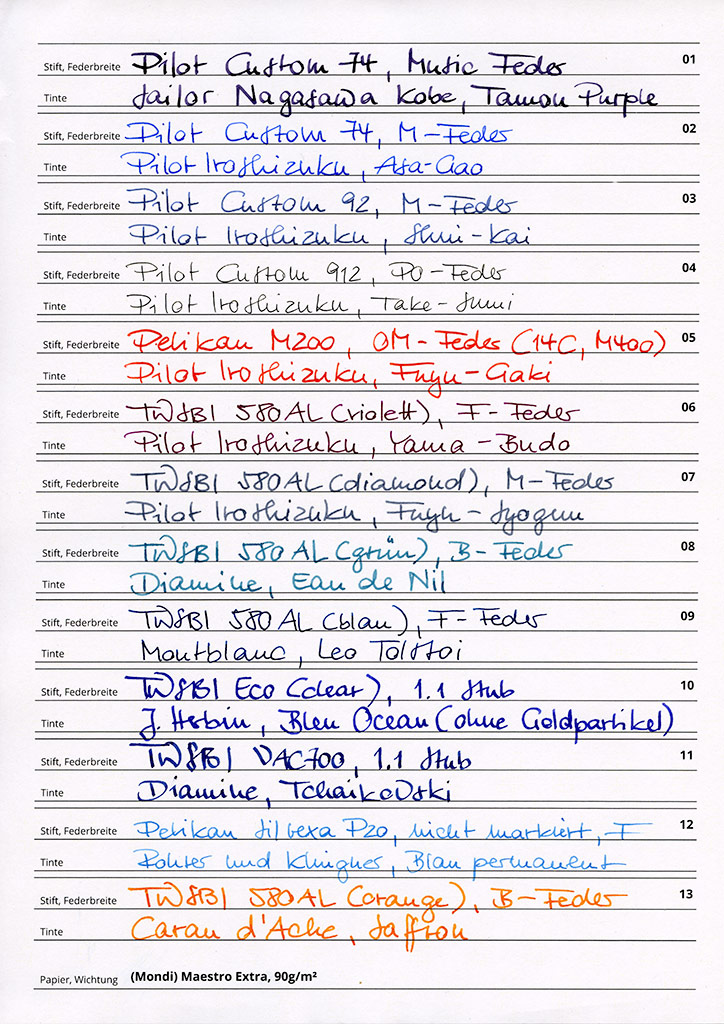 Stift, Federbreite Pilot Custom 74, Music Feder 01
Tinte Sailor Nagasawa Kobe, Tamon Purple
Stift, Federbreite Pilot Custom 74, M-Feder 02
Tinte Pilot Iroshizuku, Asa-Gao
Stift, Federbreite Pilot Custom 92, M-Feder 03
Tinte Pilot Iroshizuku, Shin-Kai
Stift, Federbreite Pilot Custom 912, PO-Feder 04
Tinte Pilot Iroshizuku, Take-Sumi
Stift, Federbreite Pelikan M200, OM-Feder (14C, M400) 05
Tinte Pilot Iroshizuku, Fuyu-Gaki
Stift, Federbreite TWSBI 580AL (violett), F-Feder 06
Tinte Pilot Iroshizuku, Yama-Budo
Stift, Federbreite TWSBI 580AL (diamond), M-Feder 07
Tinte Pilot Iroshizuku, Fuyu-Syogun
Stift, Federbreite TWSBI 580AL (grün), B-Feder 08
Tinte Diamine, Eau de Nil
Stift, Federbreite TWSBI 580AL (blau), F-Feder 09
Tinte Montblanc, Leo Tolstoi
Stift, Federbreite TWSBI Eco (clear), 1.1 Stub 10
Tinte J. Herbin, Bleu Ocean (ohne Goldpartikel)
Stift, Federbreite TWSBI VAC700, 1.1 Stub 11
Tinte Diamine, Tchaikovski
Stift, Federbreite Pelikan Silvexa P20, nicht markiert, F 12
Tinte Rohrer und Klingner, Blau permanent
Stift, Federbreite TWSBI 580AL (orange), B-Feder 13
Tinte Caran d'Ache, Saffron
Papier, Wichtung (Mondi) Maestro Extra, 90g/m²